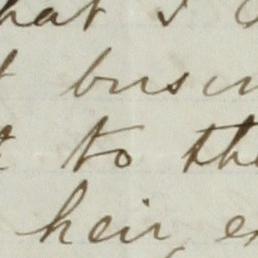 hat I
busin
to the
heir, e